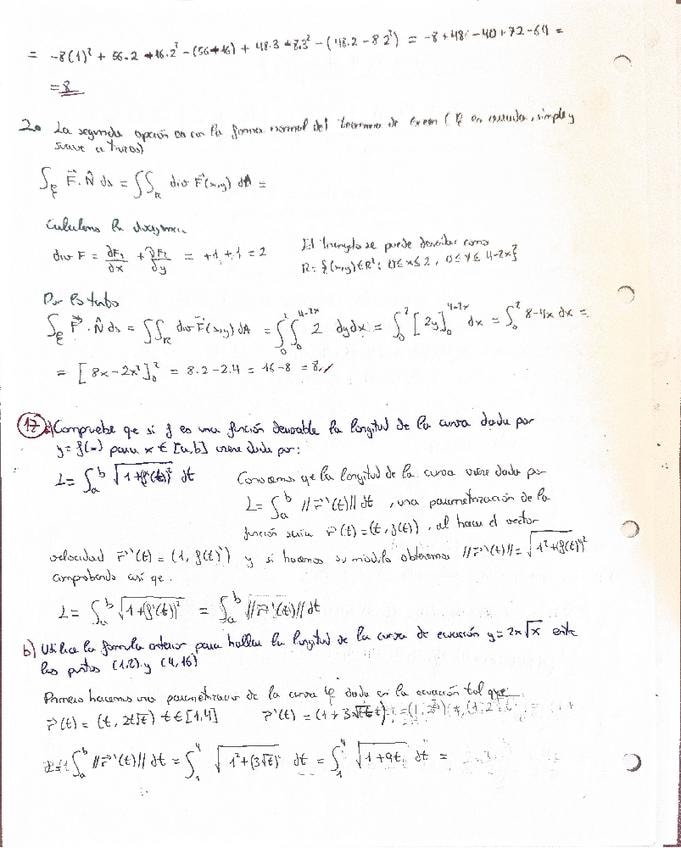 = -8(1)² + 56.2 - 16.2² - (56-16) + 48.3 - 8.3² - (48.2 - 8 2²) = -8+48 -40+72-64 =
= 8
2. La segunda opción es con la forma normal del teorema de Green ( es cerrada, simple y
suave a trozos)
∫ F⃗·N̂ ds = ∬_R div F⃗(x,y) dA =
Calculamos la divergencia
div F = ∂F₁/∂x + ∂F₂/∂y = +1+1 = 2
El triangulo se puede describir como
R = {(x,y)∈R²: 0≤x≤2, 0≤y≤4-2x}
Por lo tanto
∫ F⃗·N̂ ds = ∬_R div F⃗(x,y) dA = ∫₀²∫₀^(4-2x) 2 dy dx = ∫₀² [2y]₀^(4-2x) dx = ∫₀² 8-4x dx =
= [8x-2x²]₀² = 8.2-2.4 = 16-8 = 8
17 a) Compruebe que si f es una función derivable la longitud de la curva dada por
y = f(x) para x ∈ [a,b] viene dada por:
L = ∫ₐᵇ √(1+f'(t)²) dt
Conocemos que la longitud de la curva viene dada por
L = ∫ₐᵇ ||r⃗'(t)|| dt, una parametrización de la
función seria r⃗(t) = (t, f(t)), al hacer el vector
velocidad r⃗'(t) = (1, f(t)') y si hacemos su modulo obtenemos ||r⃗'(t)|| = √(1²+(f(t)')²)
comprobando así que.
L = ∫ₐᵇ √(1+f'(t)²) = ∫ₐᵇ ||r⃗'(t)|| dt
b) Utilice la formula anterior para hallar la longitud de la curva de ecuación y = 2x√x entre
los puntos (1,2) y (4,16)
Primero hacemos una parametrizacion de la curva dada en la ecuación tal que
r⃗(t) = (t, 2t√t) t∈[1,4]
r⃗'(t) = (1 + 3√t
∫ₐᵇ ||r⃗'(t)|| dt = ∫₁⁴ √(1²+(3√t)²) dt = ∫₁⁴ √(1+9t) dt =